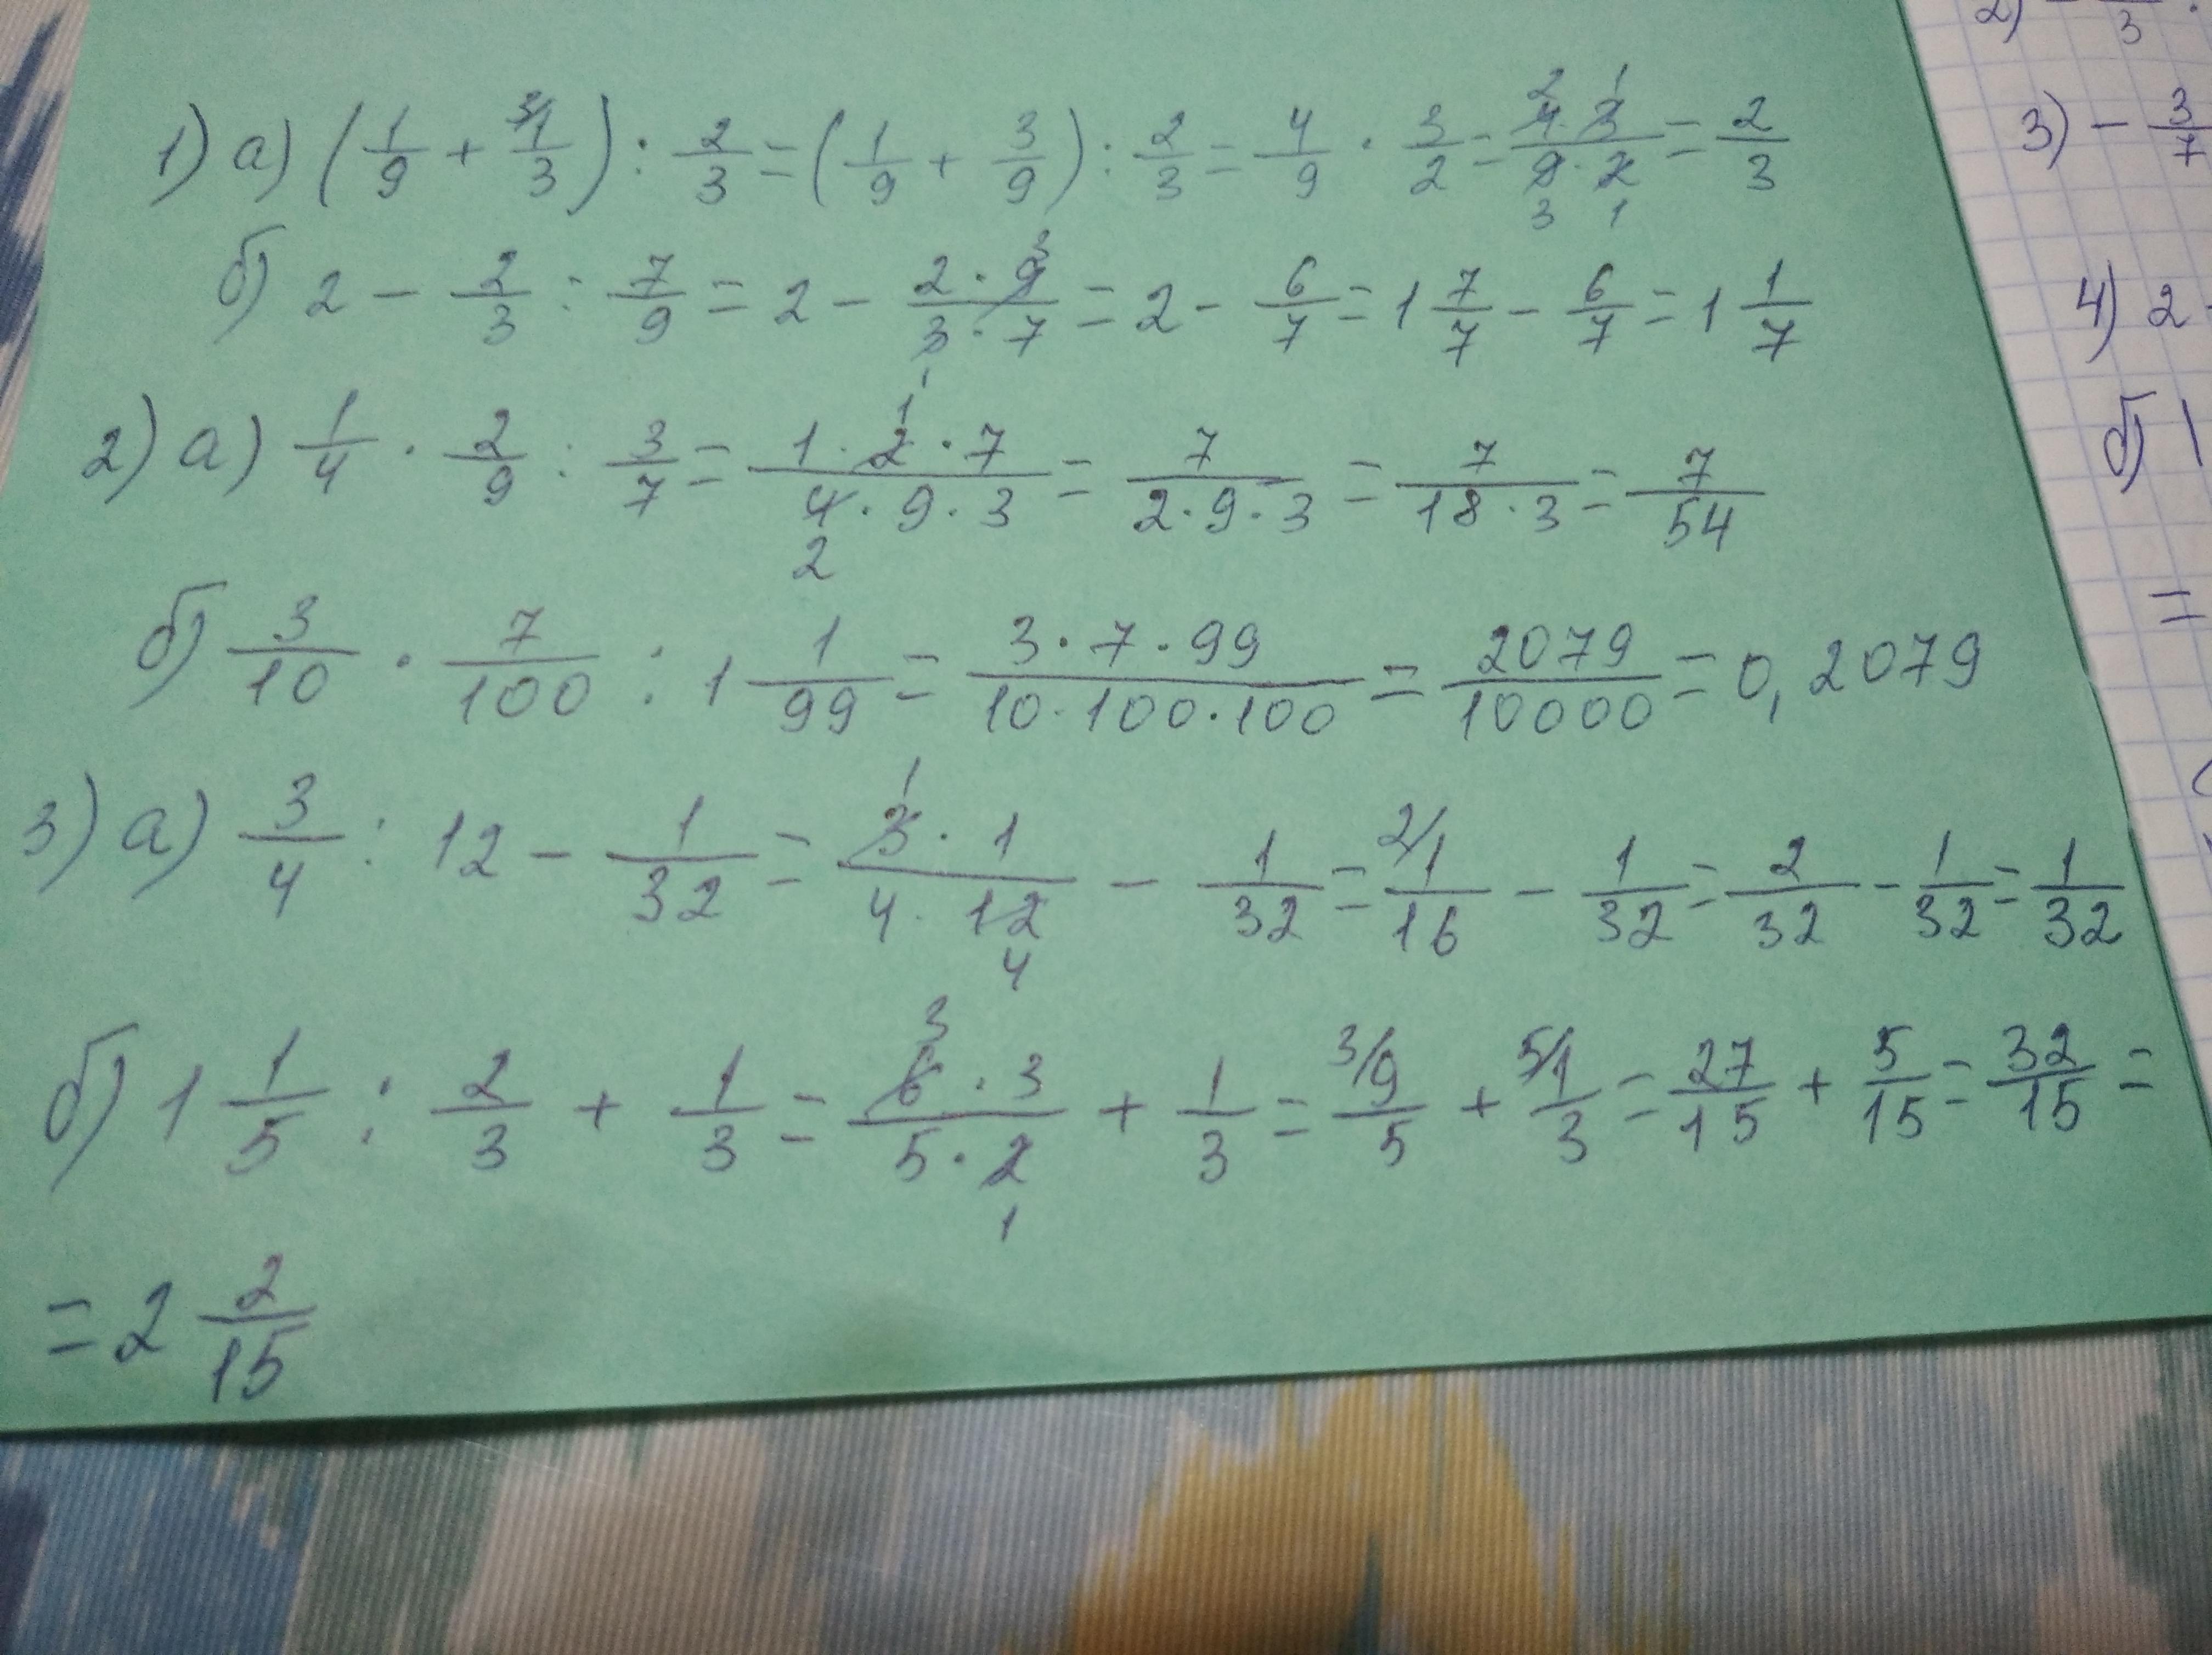 1) а) (1/9 + 3/1/3) : 2/3 = (1/9 + 3/9) : 2/3 = 4/9 · 3/2 = 4·3/9·2 = 2/3
б) 2 - 2/3 : 7/9 = 2 - 2·9/3·7 = 2 - 6/7 = 1 7/7 - 6/7 = 1 1/7
2) а) 1/4 · 2/9 : 3/7 = 1·2·7/4·9·3 = 7/2·9·3 = 7/18·3 = 7/54
б) 3/10 · 7/100 : 1 1/99 = 3·7·99/10·100·100 = 2079/10000 = 0,2079
3) а) 3/4 : 12 - 1/32 = 3·1/4·12 - 1/32 = 2/1/16 - 1/32 = 2/32 - 1/32 = 1/32
б) 1 1/5 : 2/3 + 1/3 = 6·3/5·2 + 1/3 = 3/9/5 + 5/1/3 = 27/15 + 5/15 = 32/15 =
= 2 2/15
2) - /3
3) - 3/7
4) 2
б) 1
=